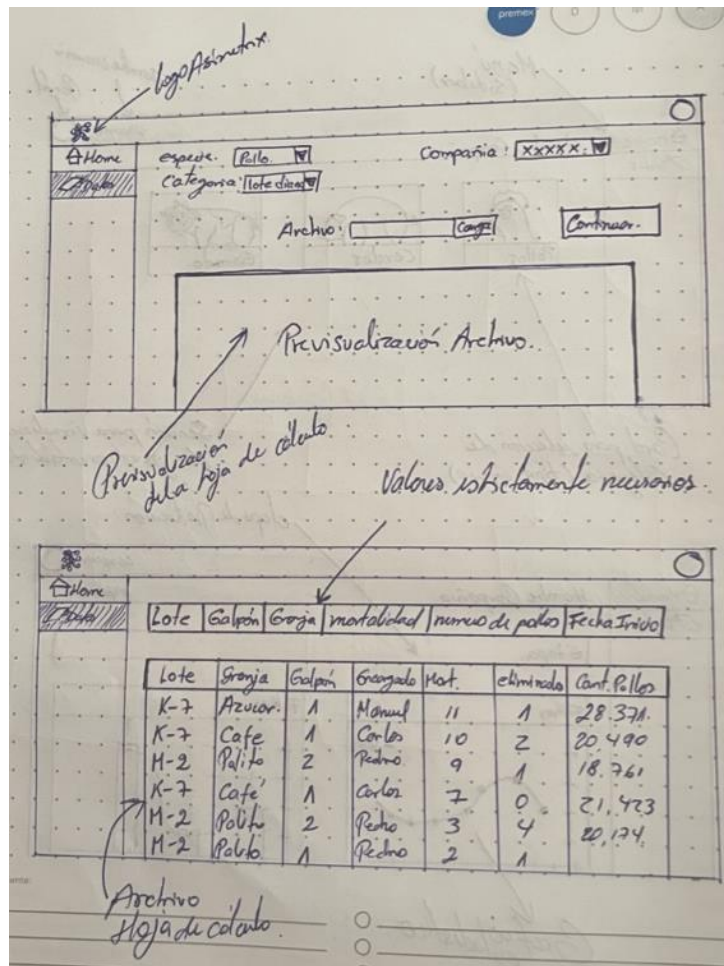 premex
Logo Asimetrix.
Home
Datos
especie. Pollo
Compañia: XXXXX.
Categoria: lote diario
Archivo: Carga
Continuar.
Previsualización Archivo.
Previsualización
de la hoja de cálculo.
Valores estrictamente necesarios.
Home
Datos
Lote Galpón Granja mortalidad numero de pollos Fecha Inicio
Lote Granja Galpón Encargado Mort. eliminado Cant. Pollos
K-7 Azucar. 1 Manuel 11 1 28.371.
K-7 Cafe 1 Carlos 10 2 20.490
M-2 Palito 2 Pedro 9 1 18.761
K-7 Café 1 Carlos 7 0 21,423
M-2 Palito 2 Pedro 3 4 20,174.
M-2 Palito 1 Pedro 2 1
Archivo
Hoja de cálculo.